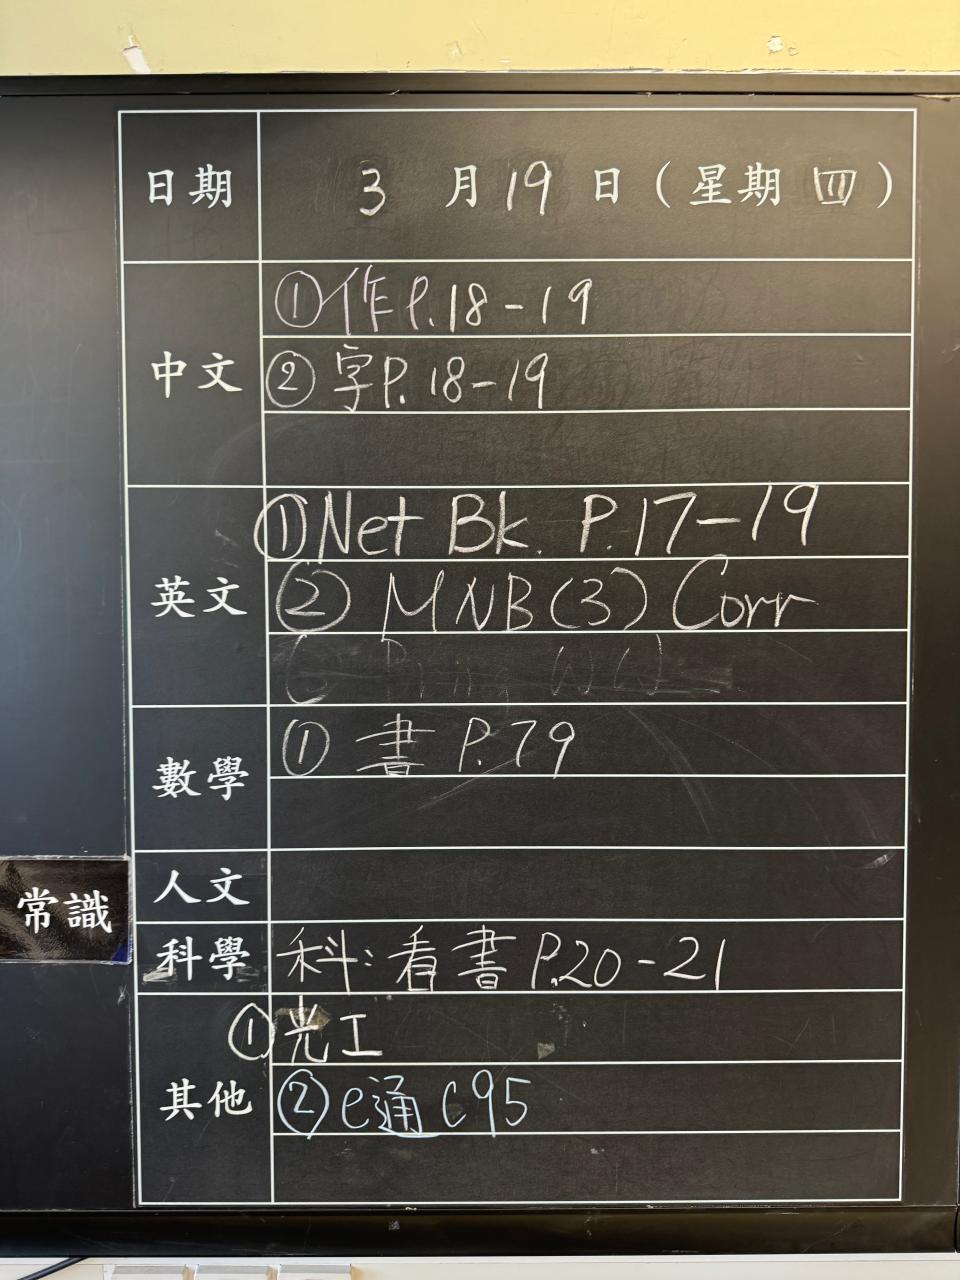 日期 3月19日（星期四）
中文 ①作P.18-19
②字P.18-19
英文 ①Net Bk. P.17-19
②MNB(3) Corr
數學 ①書 P.79
人文
常識
科學 科:看書P.20-21
其他 ①光工
②e通C95